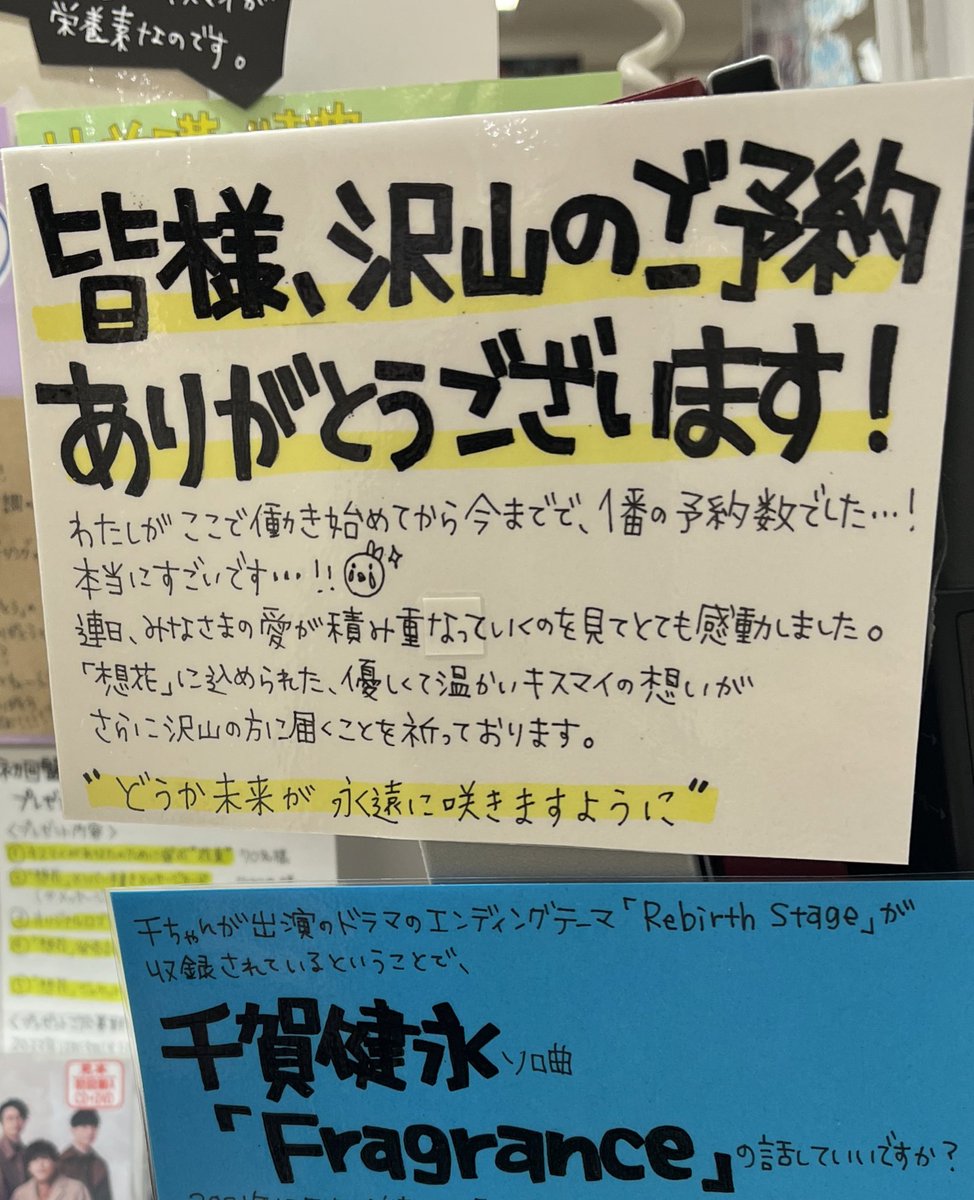 栄養素なのです。
皆様、沢山のご予約
ありがとうございます！
わたしがここで働き始めてから今までで、1番の予約数でした…！
本当にすごいです…!!
連日、みなさまの愛が積み重なっていくのを見てとても感動しました。
「想花」に込められた、優しくて温かいキスマイの想いが
さらに沢山の方に届くことを祈っております。
"どうか未来が永遠に咲きますように"
初回盤
プレゼ
〈プレゼント内容〉
千ちゃんが出演のドラマのエンディングテーマ「Rebirth Stage」が
収録されているということで、
千賀健永ソロ曲
「Fragrance」の話していいですか？
見本
CD+DVD